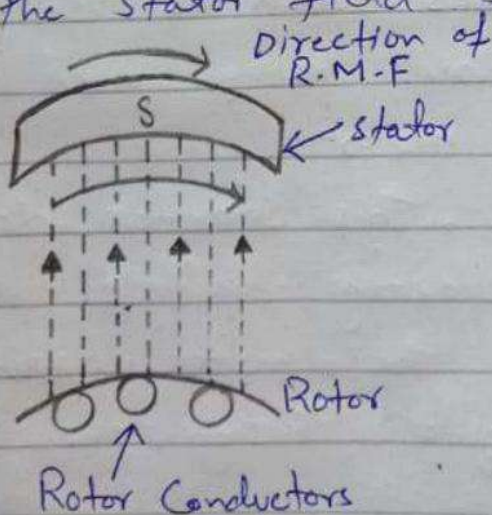 the stator field
Direction of
R.M.F
S
stator
Rotor
Rotor Conductors